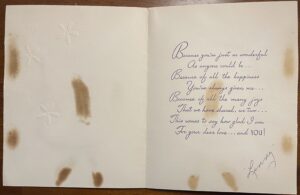 Because you're just as wonderful
As anyone could be...
Because of all the happiness
You've always given me...
Because of all the many joys
That we have shared, we two...
This comes to say how glad I am
For your dear love... and YOU!